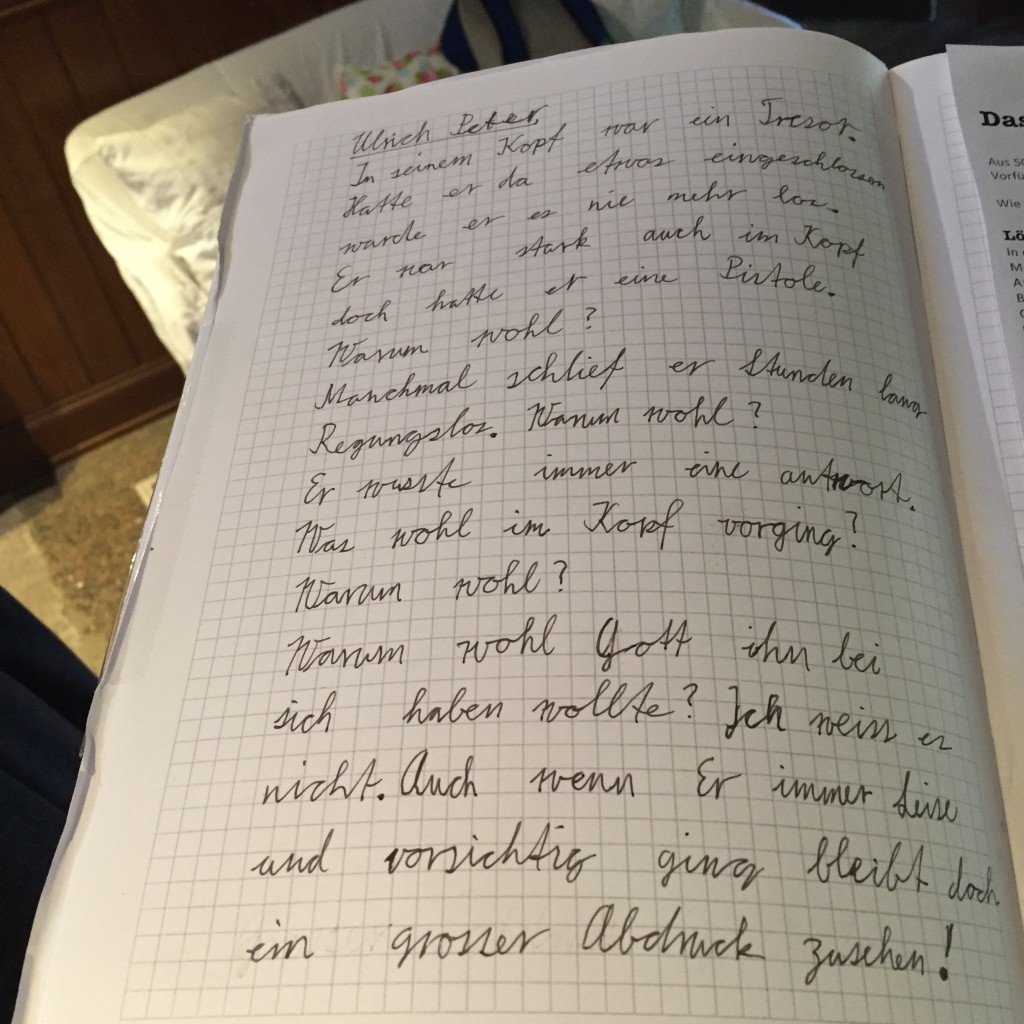 Ulrich Peter
In seinem Kopf war ein Tresor.
Hatte er da etwas eingeschlossen
wurde er es nie mehr los.
Er war stark auch im Kopf
doch hatte er eine Pistole.
Warum wohl?
Manchmal schlief er Stunden lang
Regungslos. Warum wohl?
Er wusste immer eine antwort.
Was wohl im Kopf vorging?
Warum wohl?
Warum wohl Gott ihn bei
sich haben wollte? Ich weiss es
nicht. Auch wenn Er immer leise
und vorsichtig ging bleibt doch
ein grosser Abdruck zusehen!
Das
Aus
Vorfü
Wie
Lö
In
M
A
B